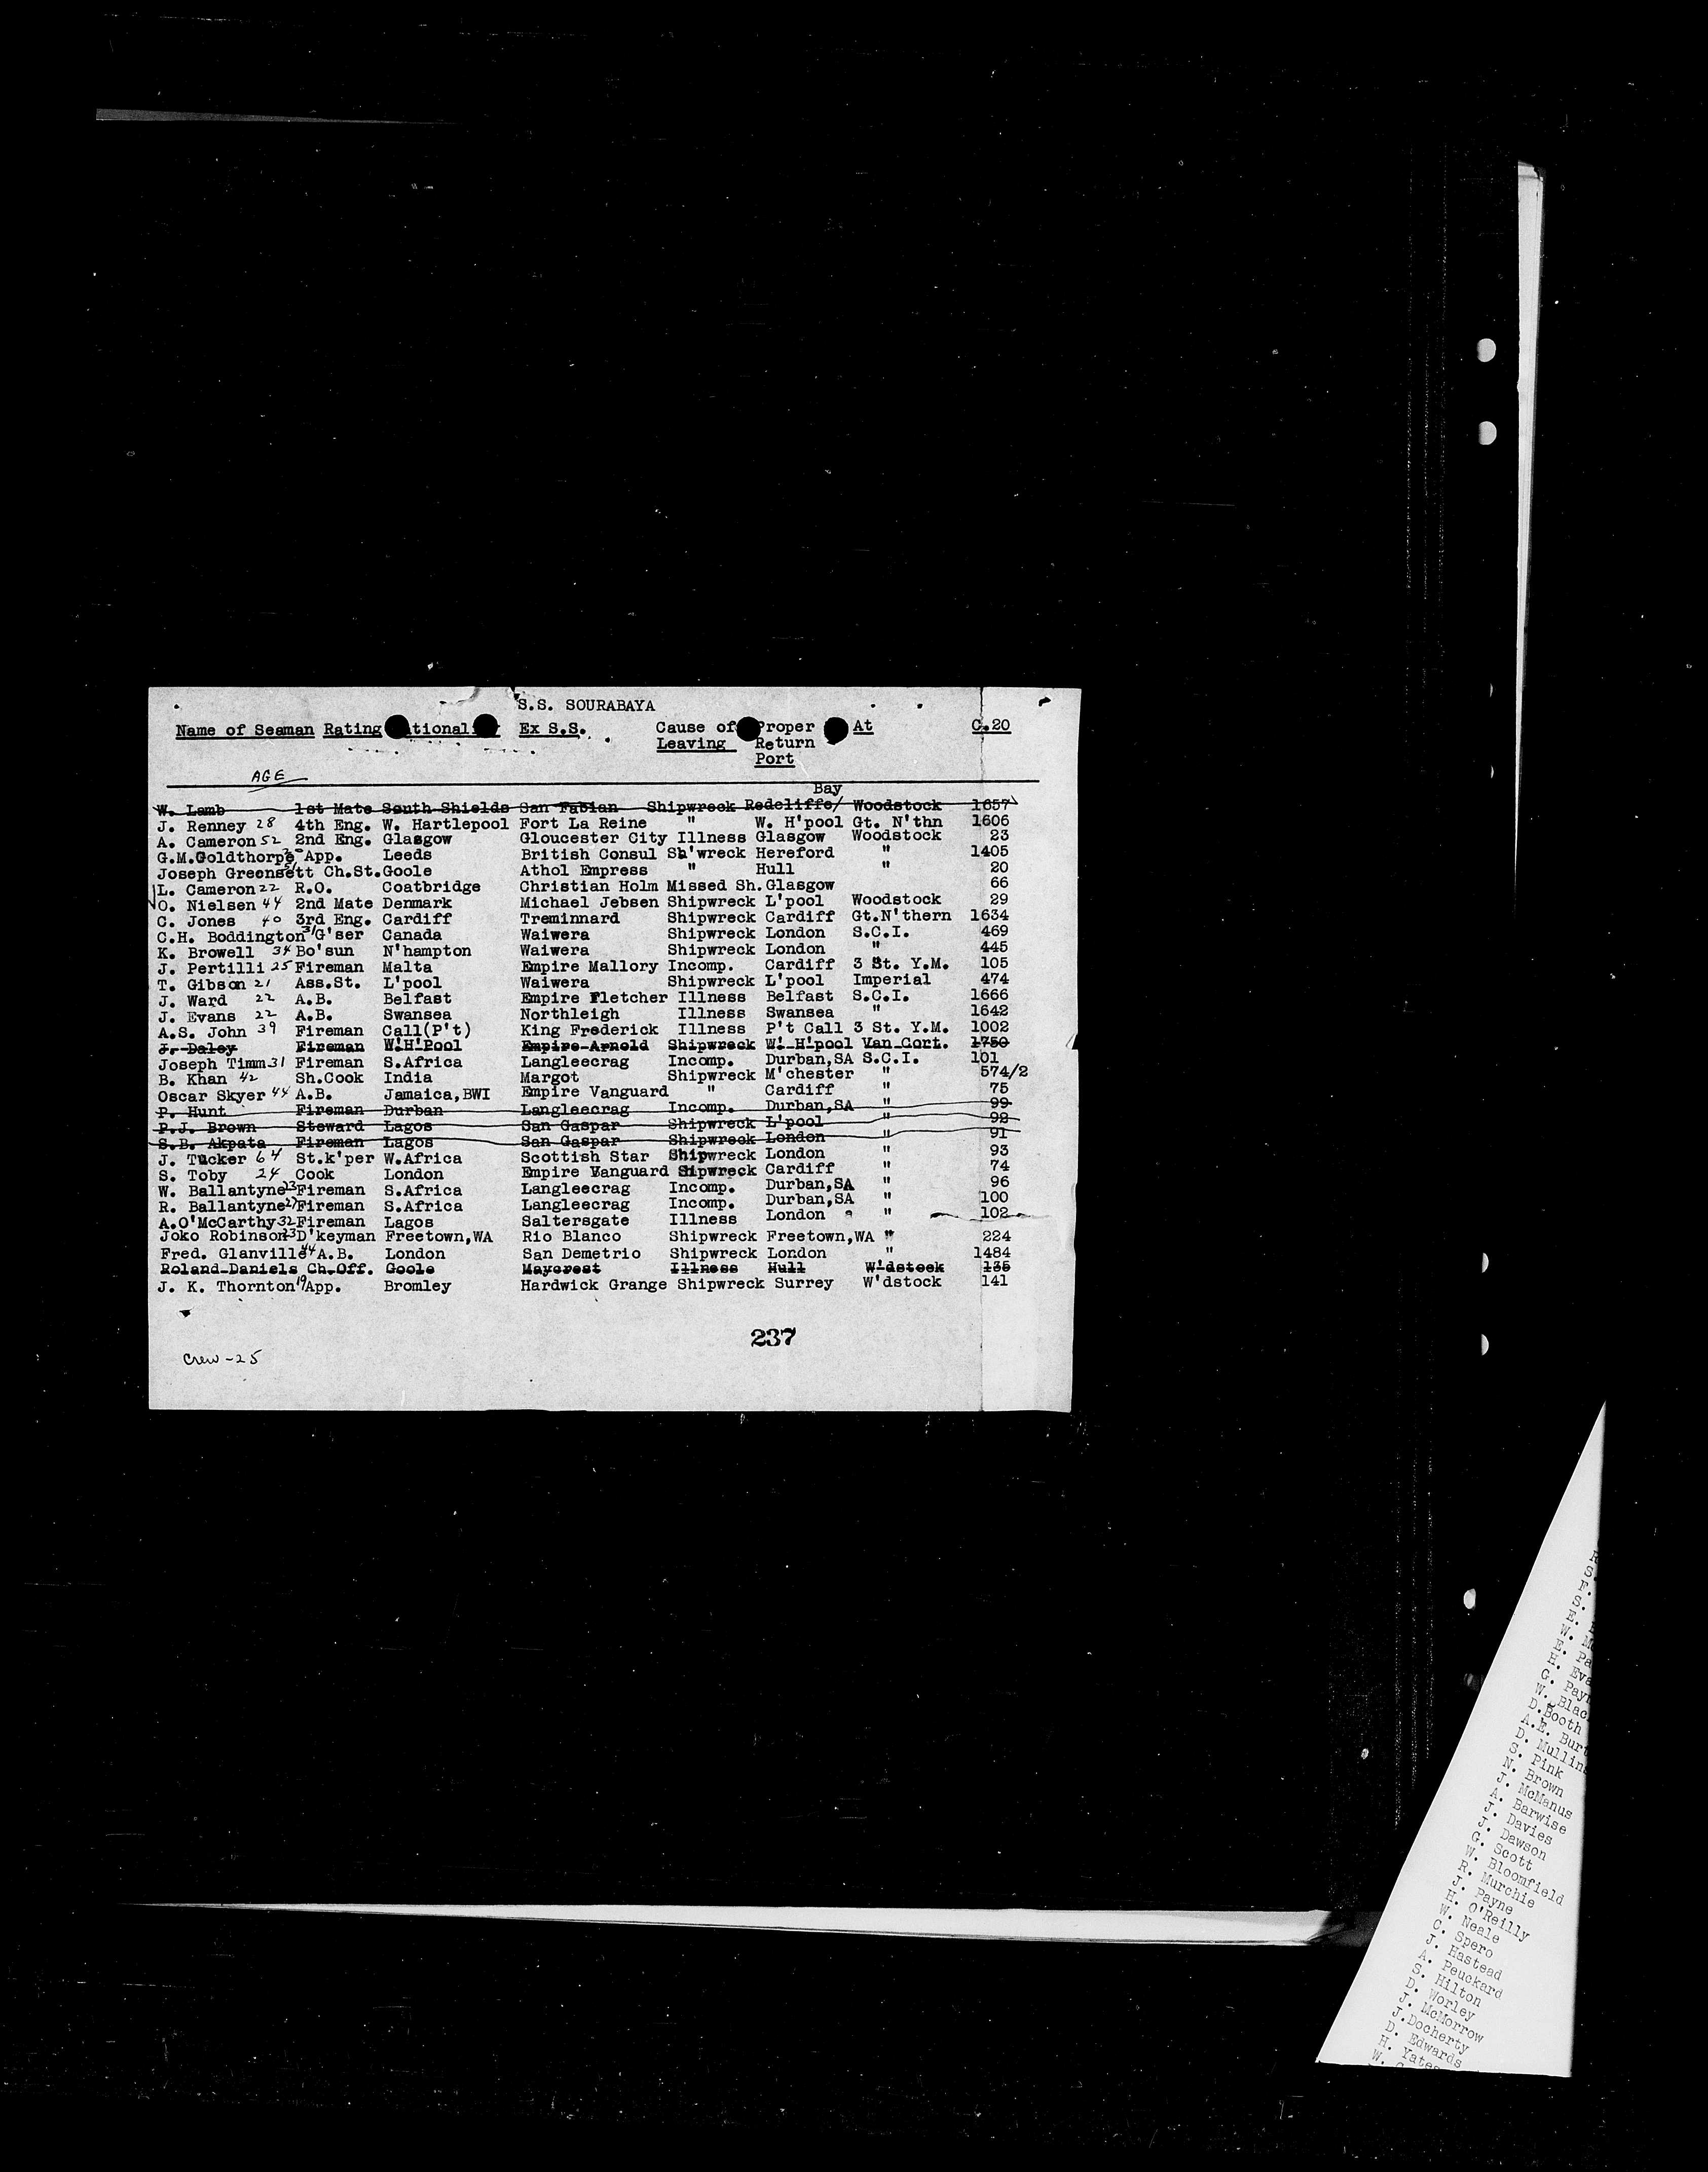 S.S. SOURABAYA
Name of Seaman Rating Ex S.S. Cause of Proper At C.20
Leaving Return
Port
AGE
Bay
W. Lamb 1st Mate South Shields San Fabian Shipwreck Redcliffe/ Woodstock 1657
J. Renney 28 4th Eng. W. Hartlepool Fort La Reine " W. H'pool Gt. N'thn 1606
A. Cameron 52 2nd Eng. Glasgow Gloucester City Illness Glasgow Woodstock 23
G.M.Goldthorpe App. Leeds British Consul Sh'wreck Hereford " 1405
Joseph Greensett Ch.St. Goole Athol Empress " Hull " 20
L. Cameron 22 R.O. Coatbridge Christian Holm Missed Sh. Glasgow 66
O. Nielsen 44 2nd Mate Denmark Michael Jebsen Shipwreck L'pool Woodstock 29
C. Jones 40 3rd Eng. Cardiff Treminnard Shipwreck Cardiff Gt.N'thern 1634
C.H. Boddington 31 G'ser Canada Waiwera Shipwreck London S.C.I. 469
K. Browell 34 Bo'sun N'hampton Waiwera Shipwreck London " 445
J. Pertilli 25 Fireman Malta Empire Mallory Incomp. Cardiff 3 St. Y.M. 105
T. Gibson 21 Ass.St. L'pool Waiwera Shipwreck L'pool Imperial 474
J. Ward 22 A.B. Belfast Empire Fletcher Illness Belfast S.C.I. 1666
J. Evans 22 A.B. Swansea Northleigh Illness Swansea " 1642
A.S. John 39 Fireman Call(P't) King Frederick Illness P't Call 3 St. Y.M. 1002
J. Daley Fireman W.H.Pool Empire Arnold Shipwreck W. H'pool Van Cort. 1750
Joseph Timm 31 Fireman S.Africa Langleecrag Incomp. Durban,SA S.C.I. 101
B. Khan 42 Sh.Cook India Margot Shipwreck M'chester " 574/2
Oscar Skyer 44 A.B. Jamaica,BWI Empire Vanguard " Cardiff " 75
P. Hunt Fireman Durban Langleecrag Incomp. Durban,SA " 99
P.J. Brown Steward Lagos San Gaspar Shipwreck L'pool " 92
S.B. Akpata Fireman Lagos San Gaspar Shipwreck London " 91
J. Tucker 64 St.k'per W.Africa Scottish Star Shipwreck London " 93
S. Toby 24 Cook London Empire Vanguard Sipwreck Cardiff " 74
W. Ballantyne 23 Fireman S.Africa Langleecrag Incomp. Durban,SA " 96
R. Ballantyne 27 Fireman S.Africa Langleecrag Incomp. Durban,SA " 100
A.O'McCarthy 32 Fireman Lagos Saltersgate Illness London " 102
Joko Robinson 23 D'keyman Freetown,WA Rio Blanco Shipwreck Freetown,WA " 224
Fred. Glanville 44 A.B. London San Demetrio Shipwreck London " 1484
Roland Daniels Ch.Off. Goole Maycrest Illness Hull W'dstock 135
J. K. Thornton 19 App. Bromley Hardwick Grange Shipwreck Surrey W'dstock 141
237
Crew - 25
D.Booth
A.E. Burt
D. Mullins
S. Pink
N. Brown
J. McManus
A. Barwise
J. Davies
J. Dawson
G. Scott
W. Bloomfield
R. Murchie
J. Payne
H. O'Reilly
W. Neale
C. Spero
J. Hastead
A. Peuckard
S. Hilton
D. Worley
J. McMorrow
J.Docherty
D. Edwards
H. Yates
W.